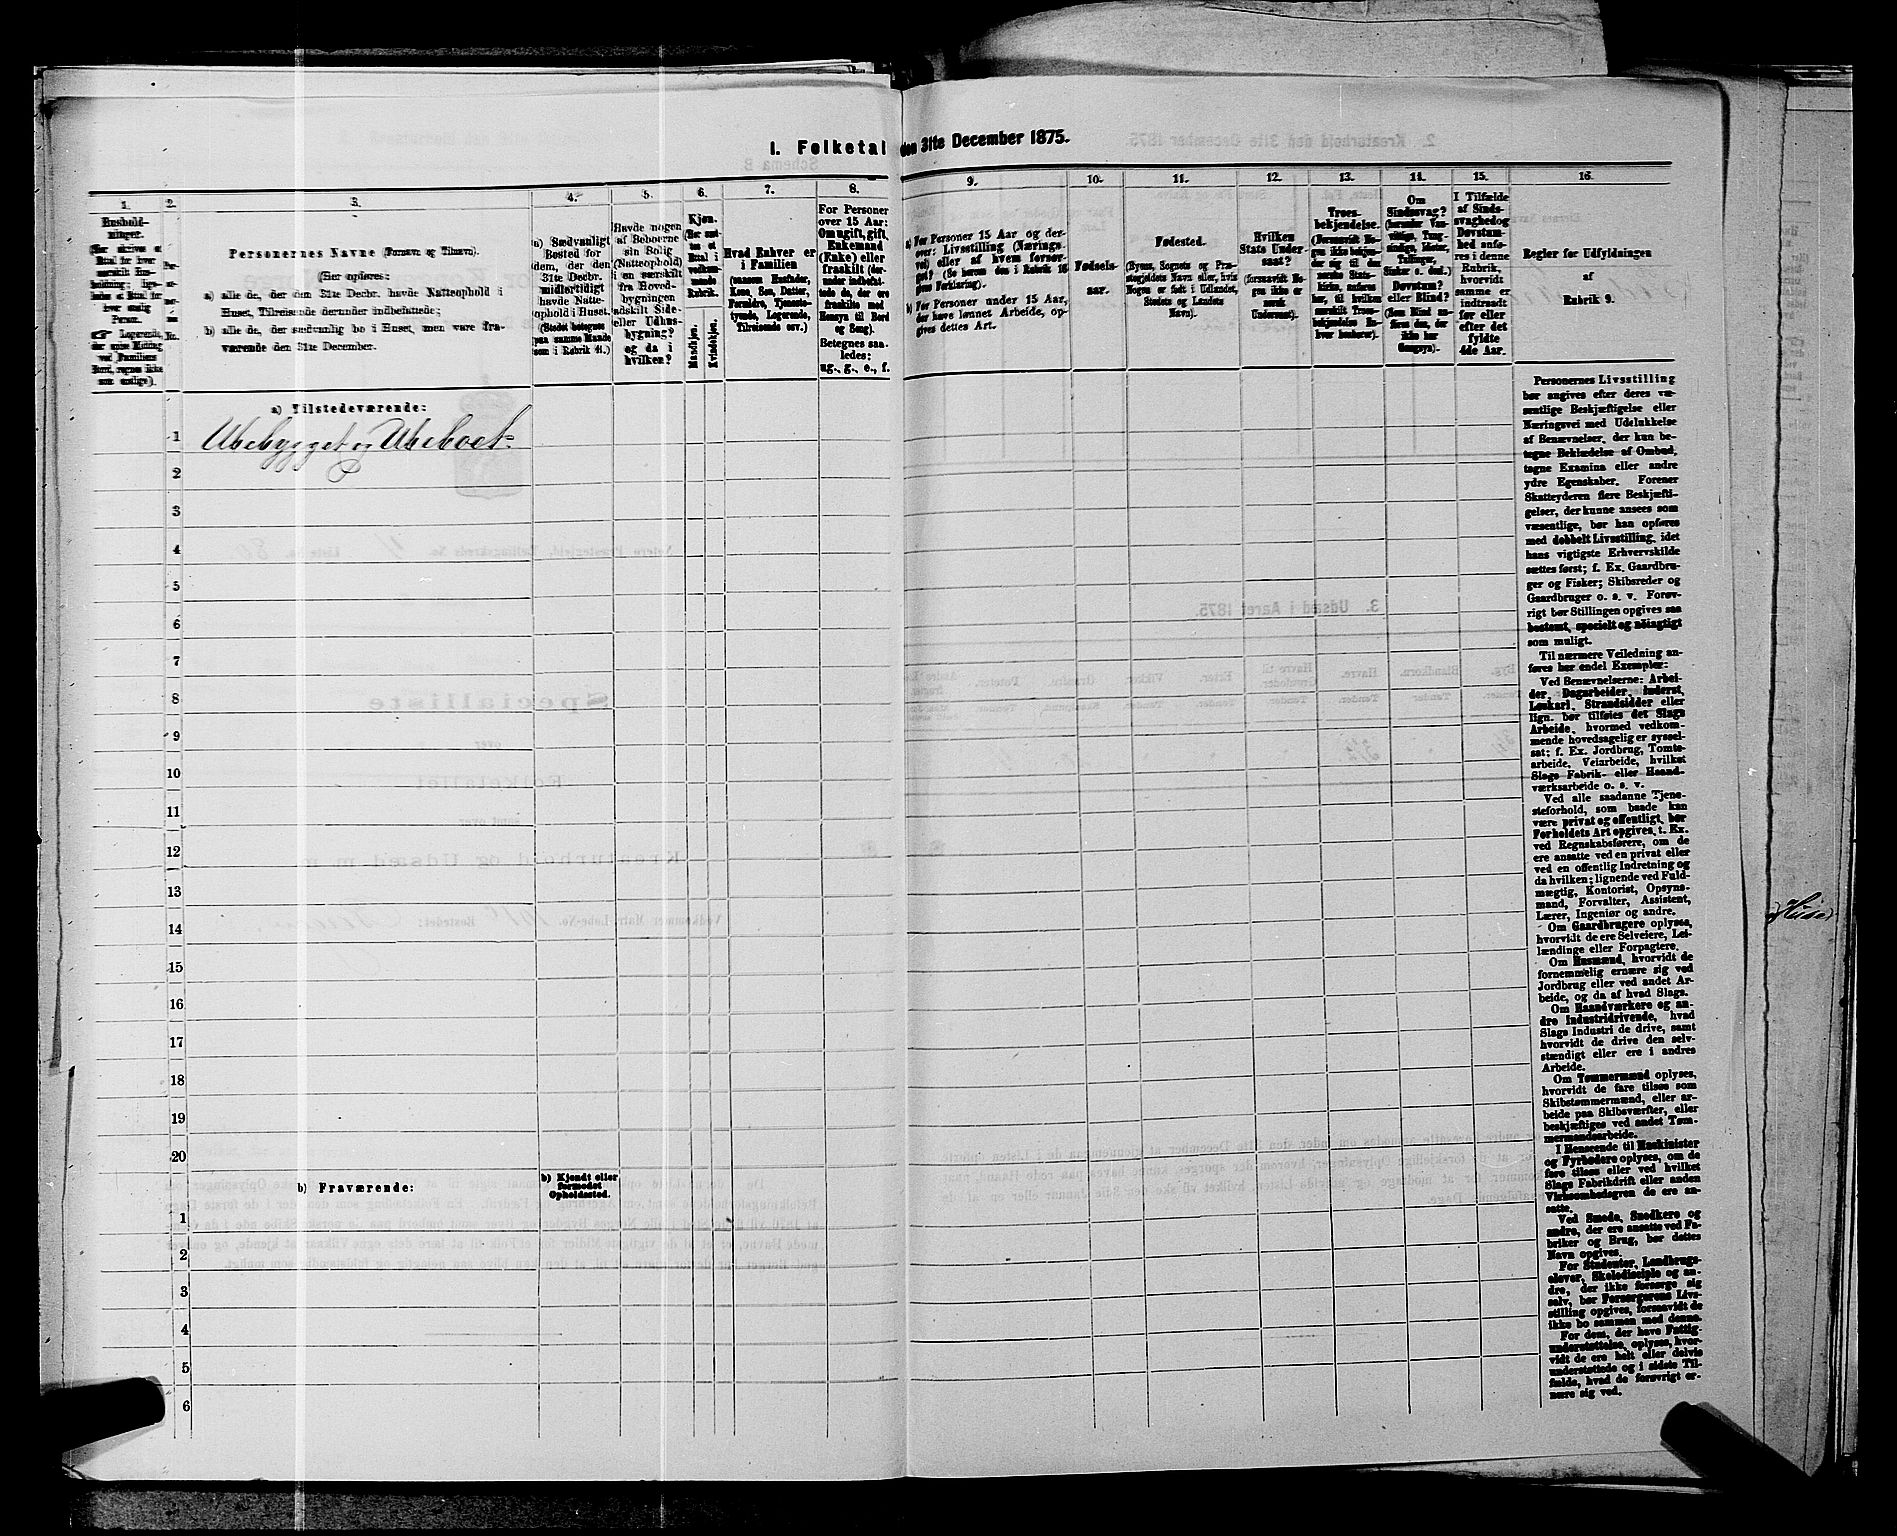 1. Folketal den 31te December 1875.
1.
Hushold-
ninger.
2.
3.
Personernes Navne (Fornavn og Tilnavn).
(Her opføres:
a) alle de, der den 31te Decbr. havde Natteophold i
Huset, Tilreisende derunder indbefattede;
b) alle de, der sædvanlig bo i Huset, men vare fra-
værende den 31te December.
4.
a) Sædvanligt
Bosted for
dem, der den
31te Decbr.
midlertidigt
havde Natte-
ophold i Huset.
(Stedet betegnes
paa samme Maade
som i Rubrik 11.)
5.
Havde nogen
af Beboerne
sin Bolig
(Natteophold)
i en særskilt
fra Hoved-
bygningen
adskilt Side-
eller Udhus-
bygning?
og da i
hvilken?
6.
Kjøn.
Mandkjøn.
Kvindekjøn.
7.
Hvad Enhver er
i Familien
(saasom Husfader,
Kone, Søn, Datter,
Forældre, Tjeneste-
tyende, Logerende,
Tilreisende osv.)
8.
For Personer
over 15 Aar:
Om ugift, gift,
Enkemand
(Enke) eller
fraskilt (der-
under indbefat-
tede de, der ere
fraskilte med
Hensyn til Bord
og Seng).
Betegnes saa-
ledes:
ug., g., e., f.
9.
a) For Personer 15 Aar og der-
over: Livsstilling (Nærings-
vei) eller af hvem forsør-
get? (Se herom den i Rubrik 16
givne Forklaring).
b) For Personer under 15 Aar,
der have lønnet Arbeide, op-
gives dettes Art.
10.
Fødsels-
aar.
11.
Fødested.
(Byens, Sognets og Præ-
stegjeldets Navn eller, hvis
Nogen er født i Udlandet,
Stedets og Landets
Navn).
12.
Hvilken
Stats Under-
saat?
(forsaavidt No-
gen ikke er
norsk
Undersaat).
13.
Troes-
bekjendelse.
14.
Om
Sindssvag?
Døvstum?
eller Blind?
15.
I Tilfælde
af Sinds-
svaghed og
Døvstum-
hed anfø-
res i denne
Rubrik,
hvorvidt
samme er
indtraadt
før eller
efter det
fyldte
4de Aar.
16.
Regler for Udfyldningen
af
Rubrik 9.
a) Tilstedeværende:
1 Ubebygget og Ubeboet
2
3
4
5
6
7
8
9
10
11
12
13
14
15
16
17
18
19
20
b) Fraværende:
b) Kjendt eller
formodet
Opholdssted.
1
2
3
4
5
6
Personernes Livsstilling
bør angives efter deres væ-
sentlige Beskjæftigelse eller
Næringsvei med Udelukkelse
af Benævnelser, der kun be-
tegne Beklædelse af Ombud,
tagne Examina eller andre
ydre Egenskaber. Forener
Skatteyderen flere Beskjæfti-
gelser, der kunne ansees som
væsentlige, bør han opføres
med dobbelt Livsstilling, idet
hans vigtigste Erhvervskilde
sættes først; f. Ex. Gaardbru-
ger og Fisker; Skibsreder og
Gaardbruger o. s. v. Forøv-
rigt bør Stillingen opgives saa
bestemt, specielt og nøiagtigt
som muligt.
Til nærmere Veiledning an-
føres her endel Exempler:
Ved Benævnelserne: Arbei-
der, Dagarbeider, Inderst,
Løskarl, Strandsidder eller
lign. bør tilføies det Slags
Arbeide, hvormed vedkom-
mende hovedsagelig er syssel-
sat; f. Ex. Jordbrug, Tomte-
arbeide, Veiarbeide, hvilket
Slags Fabrik- eller Haand-
værksarbeide o. s. v.
Ved alle saadanne Tjene-
steforhold, som baade kan
være privat og offentligt, bør
Forholdets Art opgives, t. Ex.
ved Regnskabsførere, om de
ere ansatte ved en privat eller
ved en offentlig Indretning og
da hvilken; lignende ved Fuld-
mægtig, Kontorist, Opsyns-
mand, Forvalter, Assistent,
Lærer, Ingeniør og andre.
Om Gaardbrugere oplyses,
hvorvidt de ere Selveiere, Lei-
lændinge eller Forpagtere.
Om Husmænd, hvorvidt de
fornemmelig ernære sig ved
Jordbrug eller ved andet Ar-
beide, og da af hvad Slags.
Om Haandværkere og an-
dre Industridrivende, hvad
Slags Industri de drive, samt
hvorvidt de drive den selv-
stændigt eller ere i andres
Arbeide.
Om Tømmermænd oplyses,
hvorvidt de fare tilsøs som
Skibstømmermænd, eller ar-
beide paa Skibsværfter, eller
beskjæftiges ved andet Tøm-
mermandsarbeide.
I Henseende til Maskinister
og Fyrbødere oplyses, om de
fare tilsøs eller ved hvilket
Slags Fabrikdrift eller anden
Virksomhedsgren de ere an-
satte.
Ved Smede, Snedkere og
andre, der ere ansatte ved Fa-
briker og Brug, bør dettes
Navn opgives.
For Studenter, Landbrugs-
elever, Skoledisciple og an-
dre, der ikke forsørge sig
selv, bør Forsørgerens Livs-
stilling opgives, forsaavidt de
ikke bo sammen med denne.
For dem, der have Fattig-
understøttelse, oplyses, hvor-
vidt de ere helt eller delvis
understøttede og i sidste Til-
fælde, hvad de forøvrigt er-
nære sig ved.